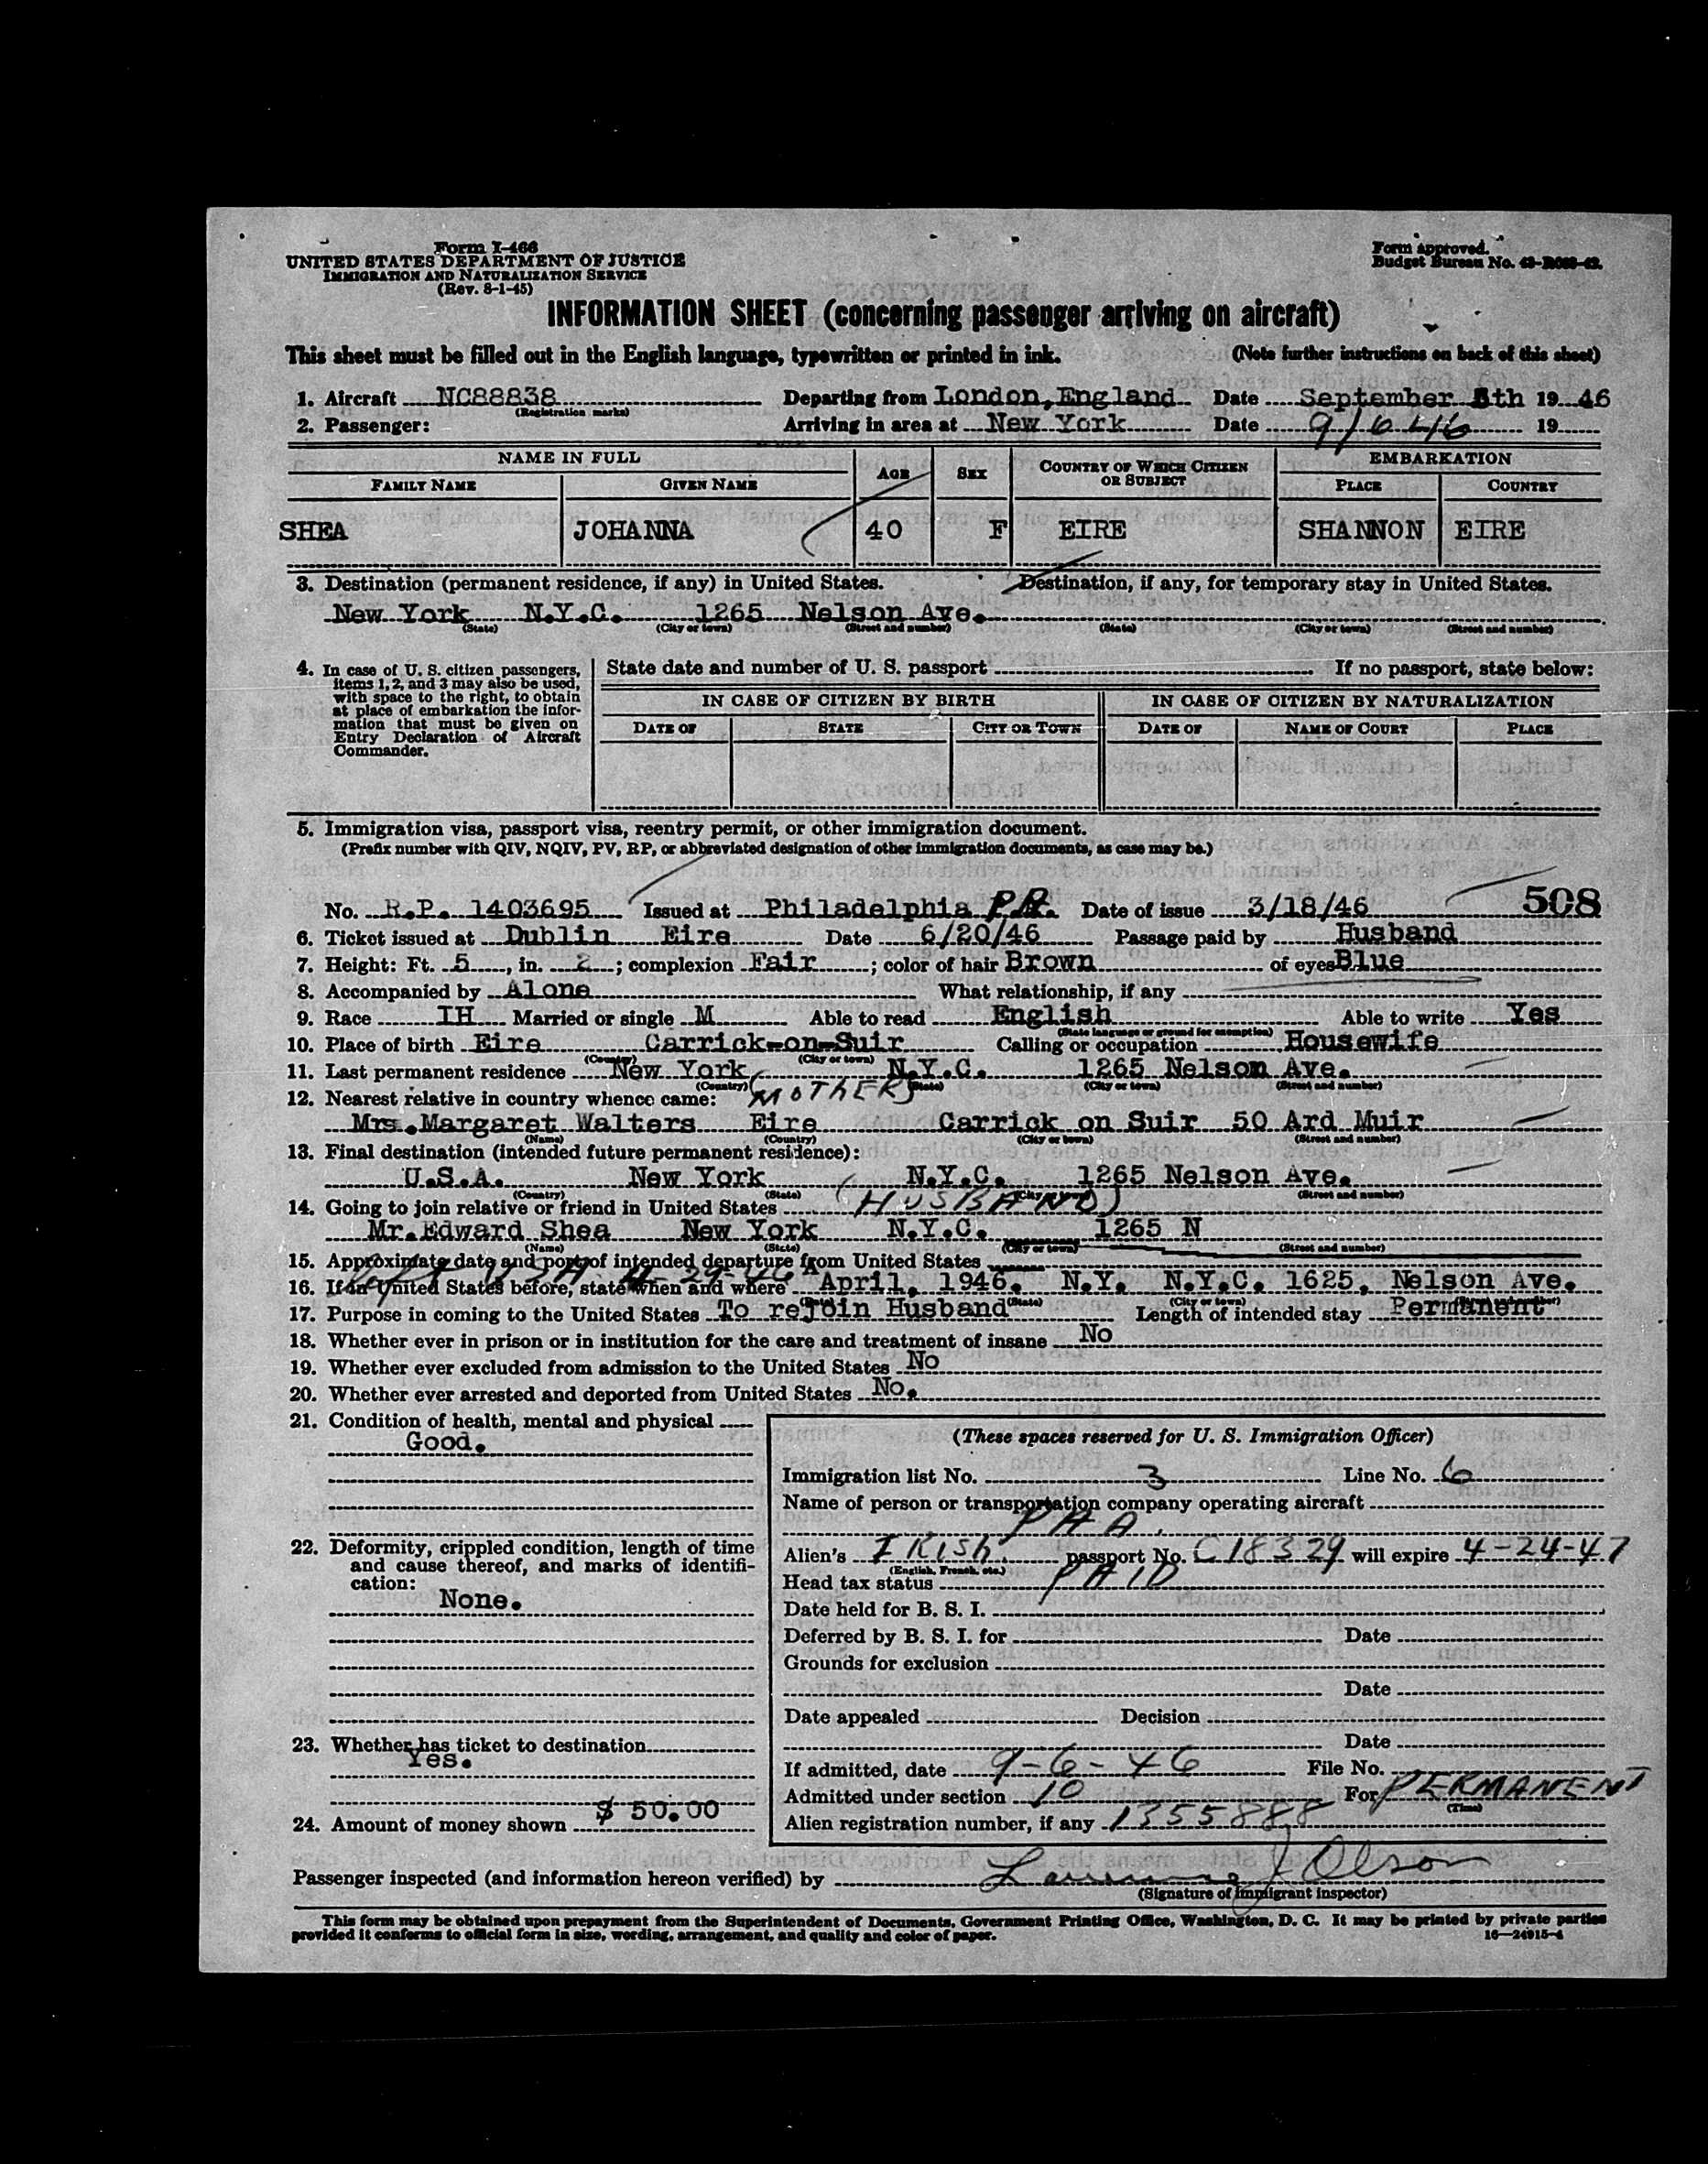 Form I-466
UNITED STATES DEPARTMENT OF JUSTICE
IMMIGRATION AND NATURALIZATION SERVICE
(Rev. 8-1-45)
Form approved.
Budget Bureau No.
INFORMATION SHEET (concerning passenger arriving on aircraft)
This sheet must be filled out in the English language, typewritten or printed in ink. (Note further instructions on back of this sheet)
1. Aircraft NC88838 Departing from London, England Date September 5th 19 46
(Registration marks)
2. Passenger: Arriving in area at New York Date 9/6 46 19
NAME IN FULL AGE SEX COUNTRY OF WHICH CITIZEN OR SUBJECT EMBARKATION
FAMILY NAME GIVEN NAME PLACE COUNTRY
SHEA JOHANNA 40 F EIRE SHANNON EIRE
3. Destination (permanent residence, if any) in United States. Destination, if any, for temporary stay in United States.
New York N.Y.C. 1265 Nelson Ave.
(State) (City or town) (Street and number) (State) (City or town) (Street and number)
4. In case of U. S. citizen passengers, items 1, 2, and 3 may also be used, with space to the right, to obtain at place of embarkation the information that must be given on Entry Declaration of Aircraft Commander.
State date and number of U. S. passport If no passport, state below:
IN CASE OF CITIZEN BY BIRTH IN CASE OF CITIZEN BY NATURALIZATION
DATE OF STATE CITY OR TOWN DATE OF NAME OF COURT PLACE
5. Immigration visa, passport visa, reentry permit, or other immigration document.
(Prefix number with QIV, NQIV, PV, RP, or abbreviated designation of other immigration documents, as case may be.)
508
No. R.P. 1403695 Issued at Philadelphia PA. Date of issue 3/18/46
6. Ticket issued at Dublin Eire Date 6/20/46 Passage paid by Husband
7. Height: Ft. 5, in. 2; complexion Fair; color of hair Brown of eyes Blue
8. Accompanied by Alone What relationship, if any
9. Race IH Married or single M Able to read English Able to write Yes
(State language or ground for exemption)
10. Place of birth Eire Carrick-on-Suir Calling or occupation Housewife
(Country) (City or town)
11. Last permanent residence New York N.Y.C. 1265 Nelson Ave.
(Country) (State) (City or town) (Street and number)
12. Nearest relative in country whence came: (MOTHER)
Mrs. Margaret Walters Eire Carrick on Suir 50 Ard Muir
(Name) (Country) (City or town) (Street and number)
13. Final destination (intended future permanent residence):
U.S.A. New York N.Y.C. 1265 Nelson Ave.
(Country) (State) (City or town) (Street and number)
14. Going to join relative or friend in United States (HUSBAND)
Mr. Edward Shea New York N.Y.C. 1265 N
(Name) (State) (City or town) (Street and number)
15. Approximate date and port of intended departure from United States
Left USA 4-29-46
16. If in United States before, state when and where April, 1946. N.Y. N.Y.C. 1625, Nelson Ave.
(Date) (State) (City or town) (Street and number)
17. Purpose in coming to the United States To rejoin Husband Length of intended stay Permanent
18. Whether ever in prison or in institution for the care and treatment of insane No
19. Whether ever excluded from admission to the United States No
20. Whether ever arrested and deported from United States No.
21. Condition of health, mental and physical
Good.
22. Deformity, crippled condition, length of time and cause thereof, and marks of identification:
None.
23. Whether has ticket to destination
Yes.
24. Amount of money shown $ 50.00
(These spaces reserved for U. S. Immigration Officer)
Immigration list No. 3 Line No. 6
Name of person or transportation company operating aircraft
PAA.
Alien's IRISH passport No. C18329 will expire 4-24-47
(English, French, etc.)
Head tax status PAID
Date held for B. S. I.
Deferred by B. S. I. for Date
Grounds for exclusion
Date
Date appealed Decision
Date
If admitted, date 9-6-46 File No.
Admitted under section 10 For PERMANENT
(Time)
Alien registration number, if any 1355888
Passenger inspected (and information hereon verified) by J Olson
(Signature of immigrant inspector)
This form may be obtained upon prepayment from the Superintendent of Documents, Government Printing Office, Washington, D. C. It may be printed by private parties
provided it conforms to official form in size, wording, arrangement, and quality and color of paper.
16—24915-4